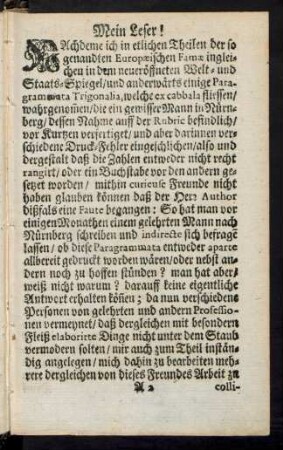 Mein Leser!
NAchdeme ich in etlichen Theilen der so
genandten Europæischen Famæ inglei-
chen in dem neueröffneten Welt- und
Staats-Spiegel/und anderwärts einige Para-
grammata Trigonalia, welche ex cabbala fliessen/
wahrgenom̃en/die ein gewisser Mann in Nürn-
berg/ dessen Nahme auff der Rubric befindlich/
vor Kurtzen verfertiget/ und aber darinnen ver-
schiedene Druck-Fehler eingeschlichen/also und
dergestalt daß die Zahlen entweder nicht recht
rangirt/ oder ein Buchstabe vor den andern ge-
setzet worden/ mithin curieuse Freunde nicht
haben glauben können daß der Herr Author
dißfals eine Faute begangen: So hat man vor
einigen Monathen einem gelehrten Mann nach
Nürnberg schreiben und indirecte sich befragē
lassen/ ob diese Paragrammata entweder aparte
allbereit gedruckt worden wären/oder nebst an-
dern noch zu hoffen stünden? man hat aber/
weiß nicht warum? darauff keine eigentliche
Antwort erhalten kön̄en; da nun verschiedene
Personen von gelehrten und andern Professio-
nen vermeynet/ daß dergleichen mit besondern
Fleiß elaborirte Dinge nicht unter dem Staub
vermodern solten/ mir auch zum Theil instän-
dig angelegen/ mich dahin zu bearbeiten meh-
rere dergleichen von dieses Freundes Arbeit zu
A 2 colli-